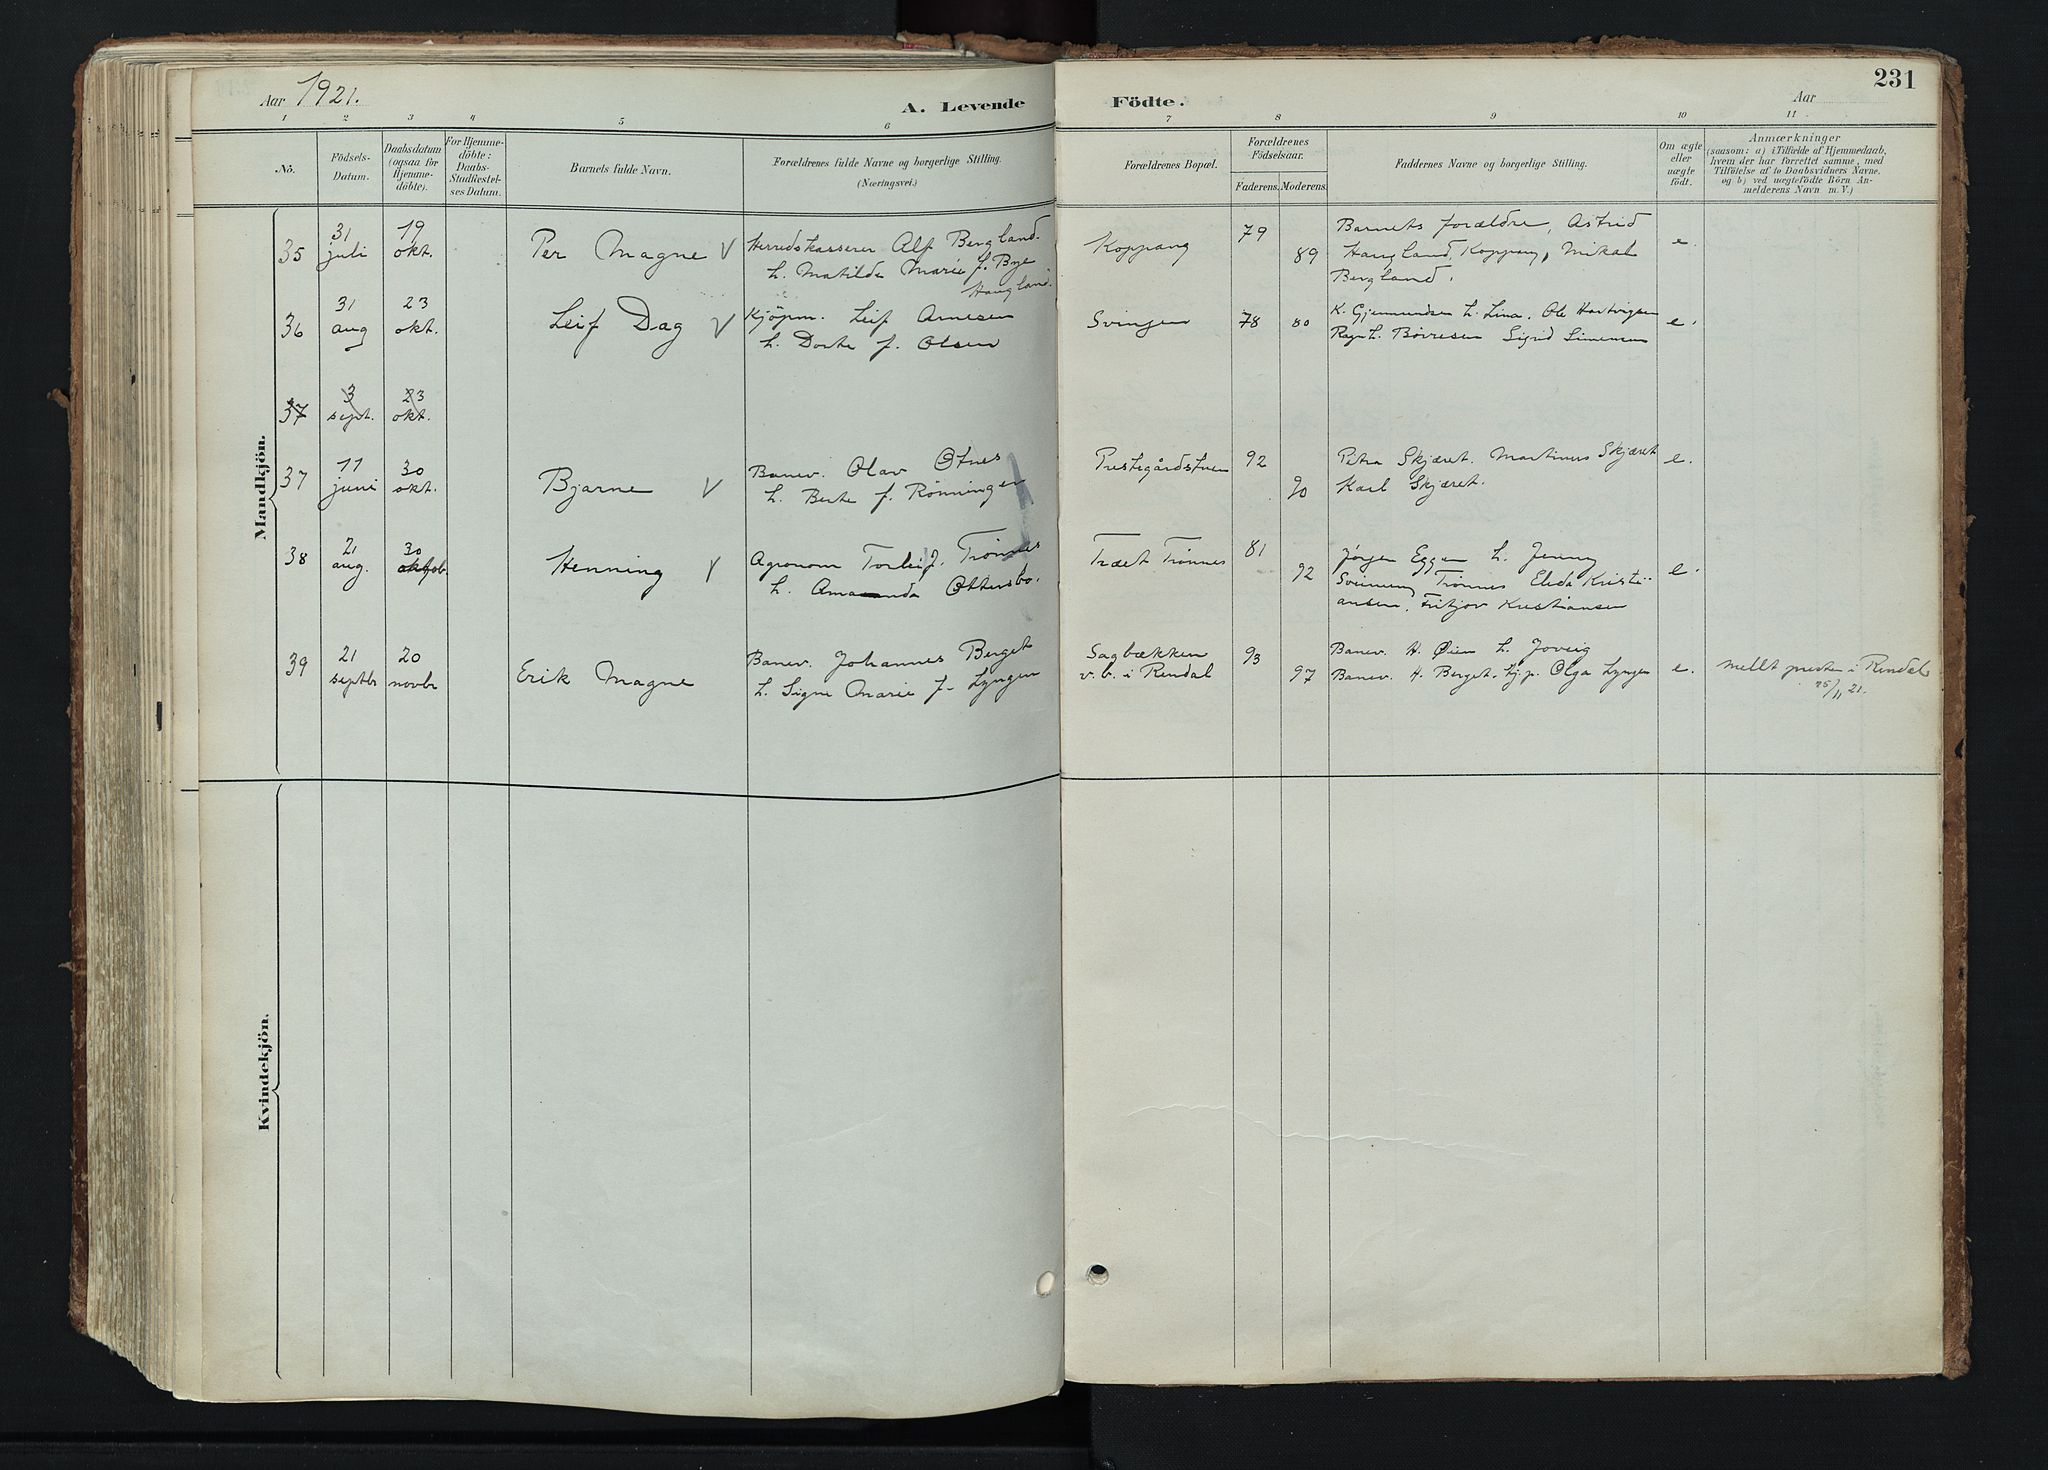 231
Aar 1921.
A. Levende Födte.
Aar
1 2 3 4 5 6 7 8 9 10 11
No.
Födsels-Datum.
Daabsdatum (ogsaa for Hjemme-döbte).
For Hjemme-döbte: Daabs-Stadfæstel-ses Datum.
Barnets fulde Navn.
Forældrenes fulde Navne og borgerlige Stilling.
(Næringsvei.)
Forældrenes Bopæl.
Forældrenes Födselsaar.
Faderens. Moderens.
Faddernes Navne og borgerlige Stilling.
Om ægte eller uægte födt.
Anmærkninger
(saasom: a) i Tilfælde af Hjemmedaab,
hvem der har forrettet samme, med
Tilföielse af to Daabsvidners Navne,
og b) ved uægtefödte Börn An-
melderens Navn m. V.)
Mandkjön.
35 31 juli 19 okt. Per Magne V
Herredskasserer Alf Bergland.
h. Matilde Marie f. Bye
Haugland.
Koppang 79 89
Barnets forældre, Astrid
Haugland, Koppang, Mikal
Bergland.
e.
36 31 aug 23 okt. Leif Dag V
Kjöpm. Leif Arnesen
h. Dorte f. Olsen
Svingen 78 80
K. Gjermundsen h. Lina. Ole Hartvigsen
Ragnh. Børresen Sigrid Simensen
e.
37 3 sept. 23 okt.
37 11 juni 30 okt. Bjarne V
Banev. Olav Otnes
h. Berte f. Rönningen
Prestegårdstuen 92 90
Petra Skjæret. Martinus Skjæret
Karl Skjæret.
e.
38 21 aug. 30 oktob. Henning V
Agronom Torleif. Trønnes
h. Amanda Ottersbo.
Trædt Trønnes 81 92
Jørgen Eggen h. Jenny
Trønnes Elida Kristi-
ansen, Fritjov Kristiansen
e.
39 21 septbr 20 novbr Erik Magne
Banev. Johannes Berget
h. Signe Marie f. Lyngen
Sagbækken
v.b. i Rendal
93 97
Banev. H. Øien h. Joveig
Banev. H. Berget. Hj.p. Olga Lyngen
e.
mellt presten i Rendal
25/11 21.
Kvindekjön.